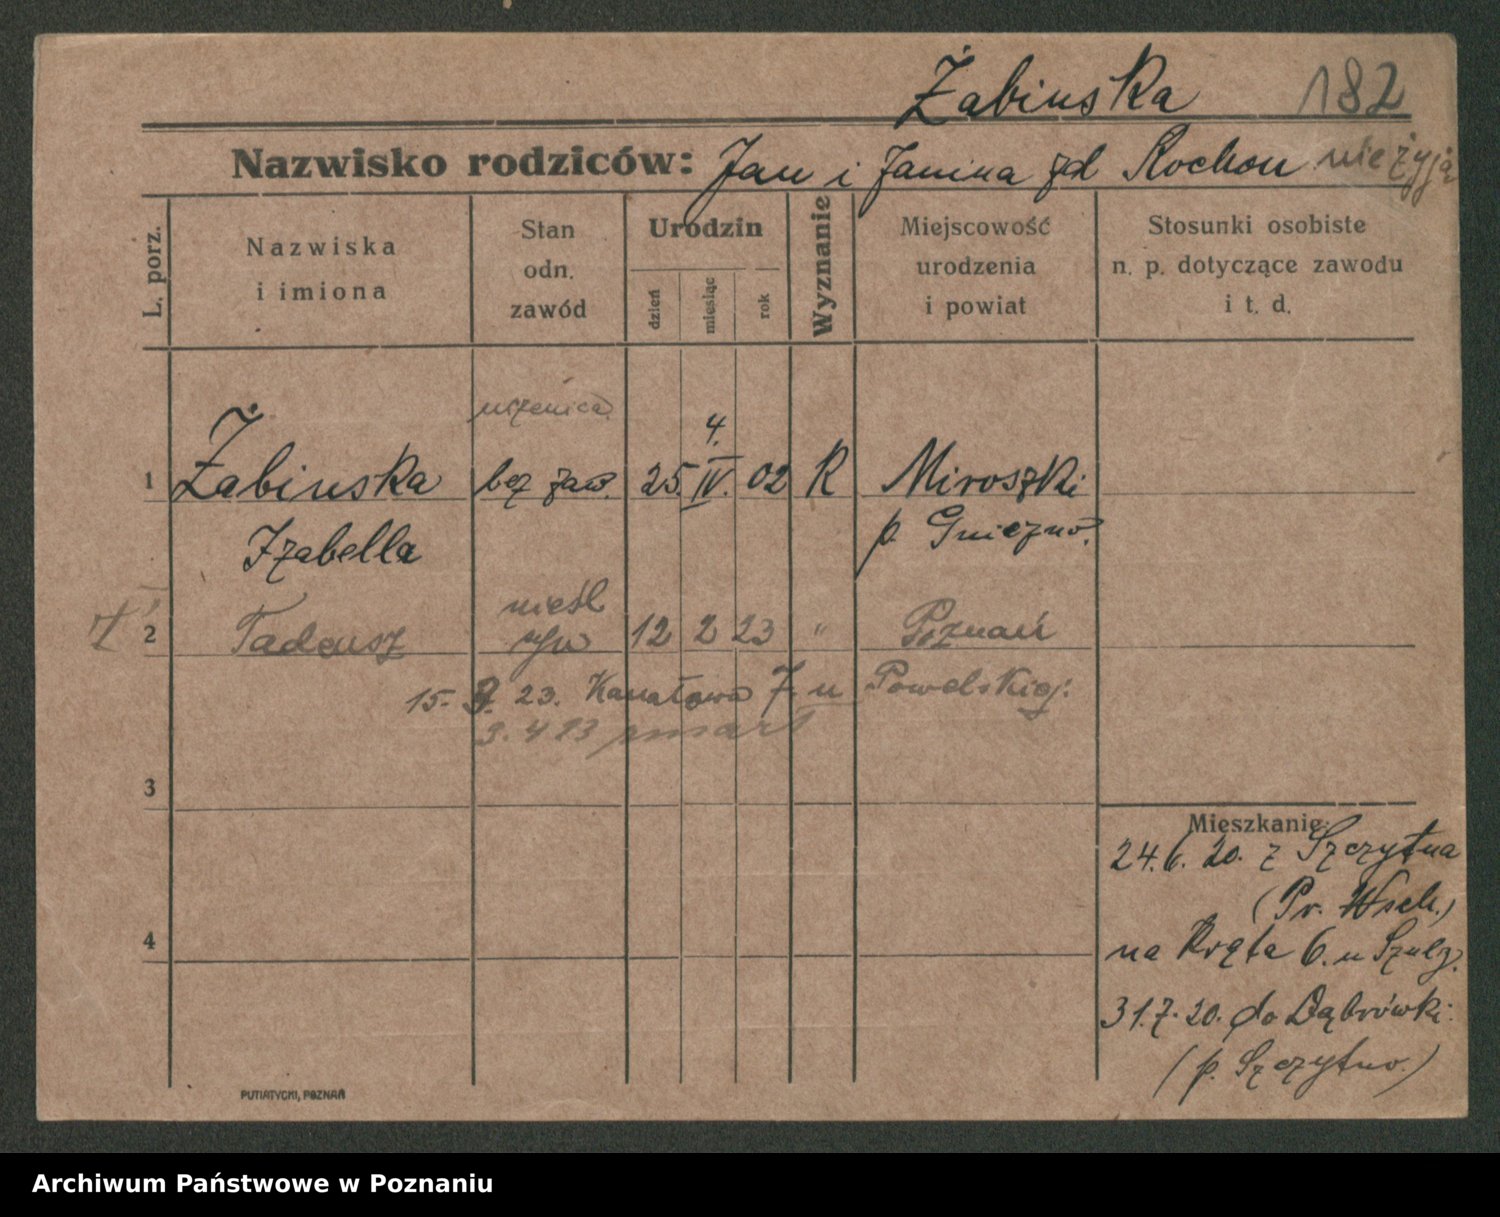 Żabinska 182
Nazwisko rodziców: Jan i Janina zd Rochon nie żyją
L. porz.
Nazwiska i imiona
Stan odn. zawód
Urodzin
dzień
miesiąc
rok
Wyznanie
Miejscowość urodzenia i powiat
Stosunki osobiste n. p. dotyczące zawodu i t. d.
uczenica
4.
1 Żabinska bez zaw. 25. IV. 02 R Miroszki
Izabella p. Gniezno.
nieśl
2 Tadeusz syn 12 2 23 " Poznań
15. 23. Kanałowa 7 u Powelskiej:
3. 4 23 zmarł
3
Mieszkanie:
24.6.20. z Szczytna
(Pr. Wsch.)
4
na Kręta 6. u Szulz.
31.7.20. do Dąbrówki
(p. Szczytno.)
PUTIATYCKI, POZNAŃ
Archiwum Państwowe w Poznaniu